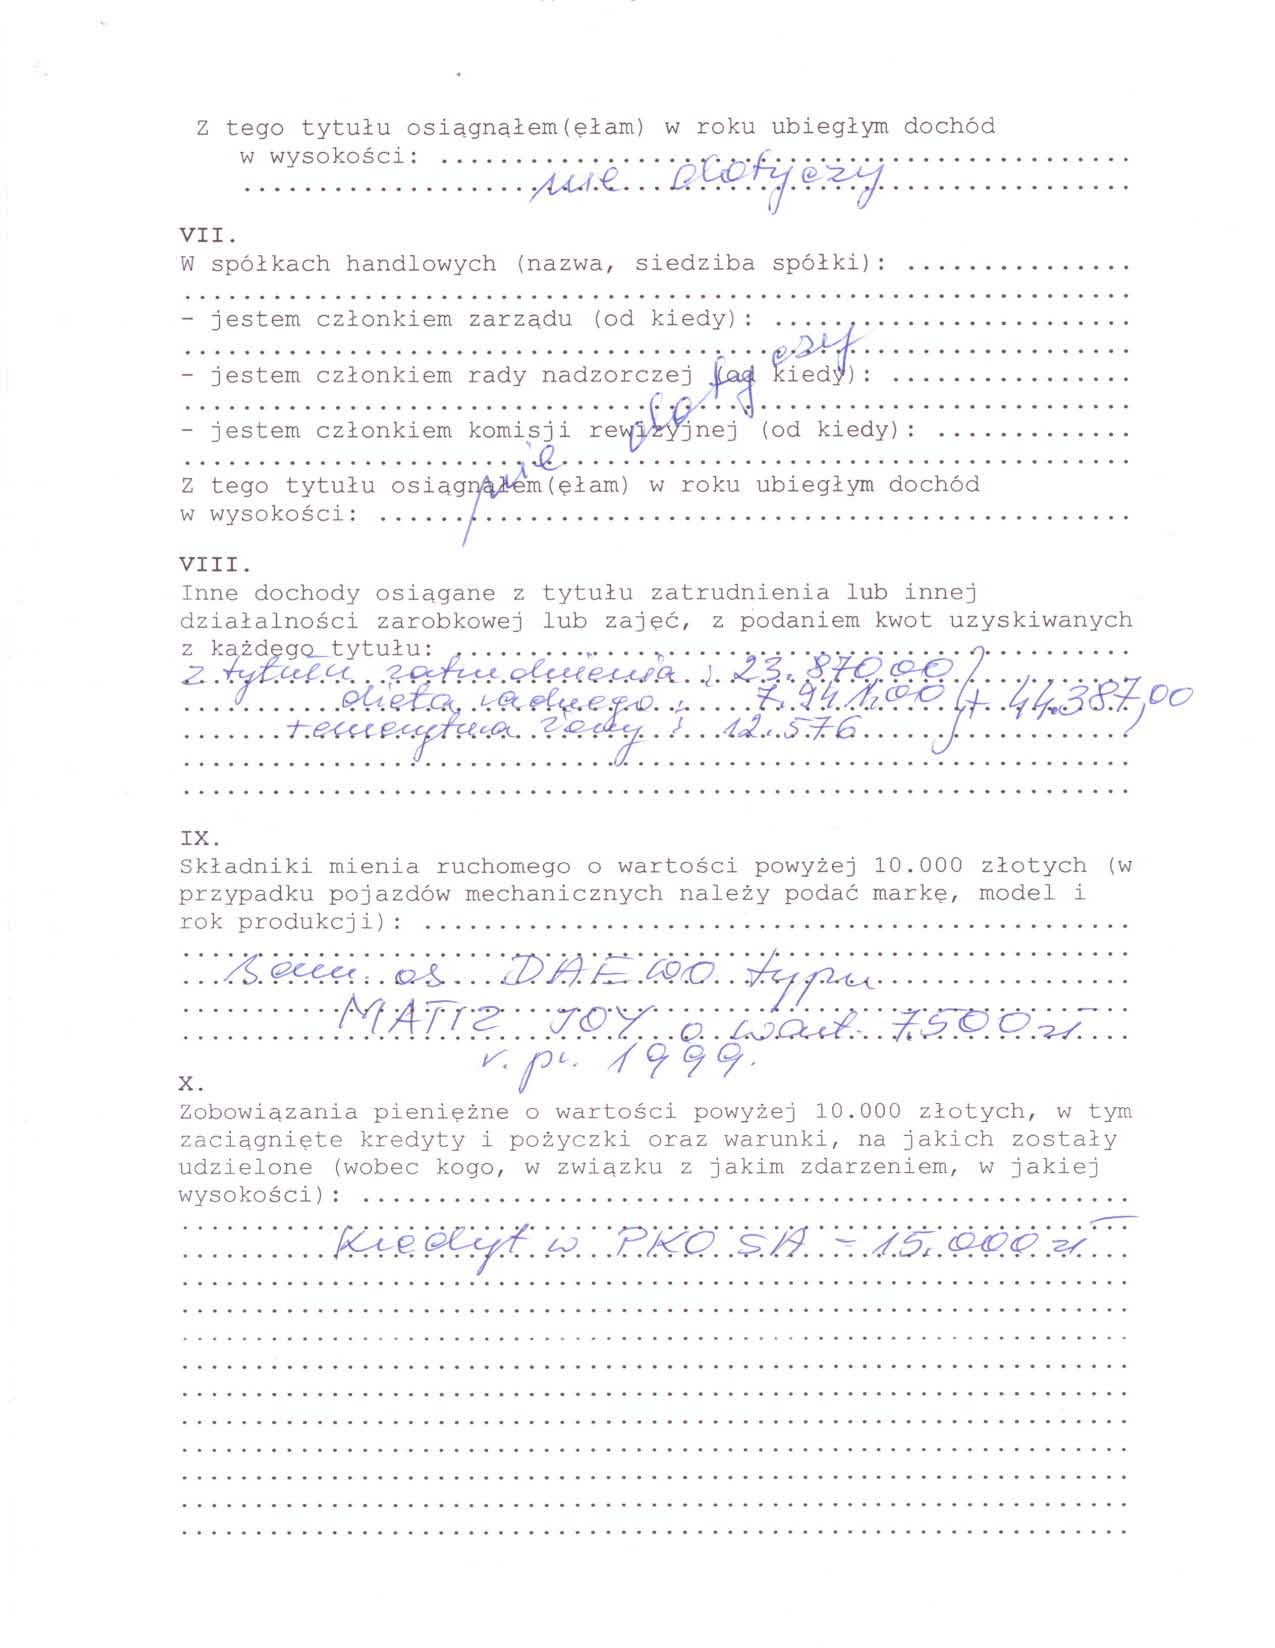 Z tego tytułu osiągnąłem(ęłam) w roku ubiegłym dochód
w wysokości: ................................................
nie dotyczy
VII.
W spółkach handlowych (nazwa, siedziba spółki): ...............
- jestem członkiem zarządu (od kiedy): ........................
- jestem członkiem rady nadzorczej (od kiedy): ................
- jestem członkiem komisji rewizyjnej (od kiedy): .............
nie dotyczy
Z tego tytułu osiągnąłem(ęłam) w roku ubiegłym dochód
w wysokości: ..................................................
VIII.
Inne dochody osiągane z tytułu zatrudnienia lub innej
działalności zarobkowej lub zajęć, z podaniem kwot uzyskiwanych
z każdego tytułu: .............................................
z tytułu zatrudnienia : 23.870,00
dieta radnego : 7.941,00 + 44.387,00
+ emerytura żony : 12.576
IX.
Składniki mienia ruchomego o wartości powyżej 10.000 złotych (w
przypadku pojazdów mechanicznych należy podać markę, model i
rok produkcji): ...............................................
Sam. os. DAEWO typu
MATIZ JOY o wart. 7500 zł
r. pr. 1999.
X.
Zobowiązania pieniężne o wartości powyżej 10.000 złotych, w tym
zaciągnięte kredyty i pożyczki oraz warunki, na jakich zostały
udzielone (wobec kogo, w związku z jakim zdarzeniem, w jakiej
wysokości): ...................................................
Kredyt w PKO SA - 15.000 zł